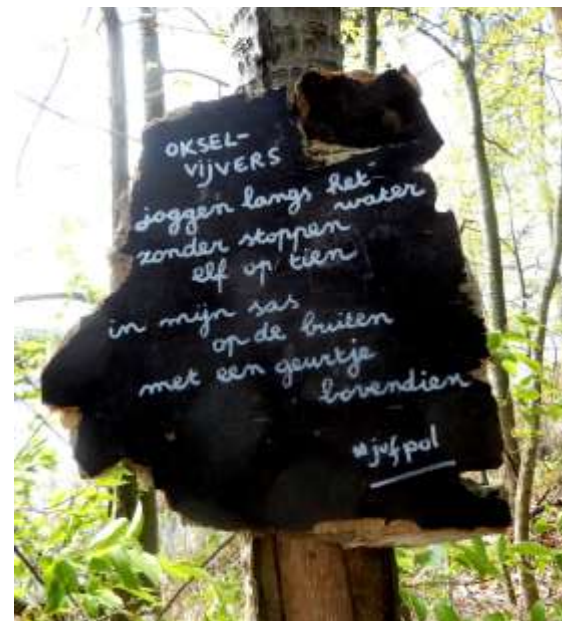 OKSEL-
VIJVERS
joggen langs het
water
zonder stoppen
elf op tien
in mijn sas
op de buiten
met een geurtje
bovendien
jufpol